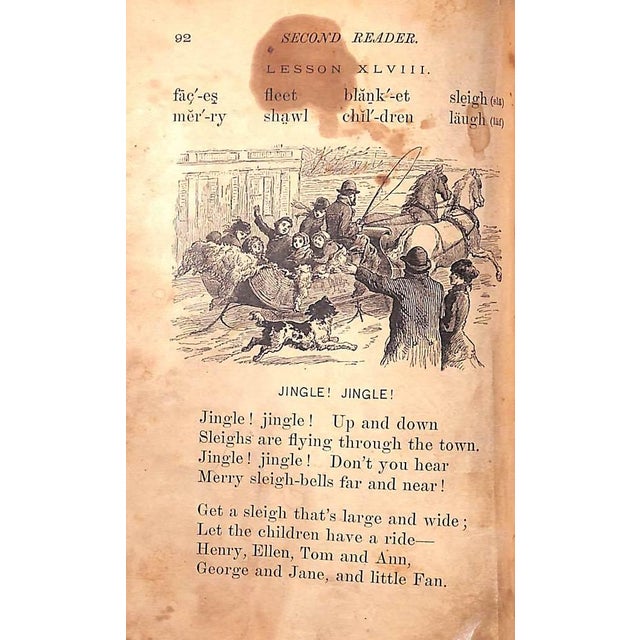 92 SECOND READER.
LESSON XLVIII.
fāç′-eş fleet blăṉk′-et sle̱igh (slā)
mĕr′-ry sha̤wl chĭl′-dren läugh (läf)
JINGLE! JINGLE!
Jingle! jingle! Up and down
Sleighs are flying through the town.
Jingle! jingle! Don't you hear
Merry sleigh-bells far and near!
Get a sleigh that's large and wide;
Let the children have a ride—
Henry, Ellen, Tom and Ann,
George and Jane, and little Fan.